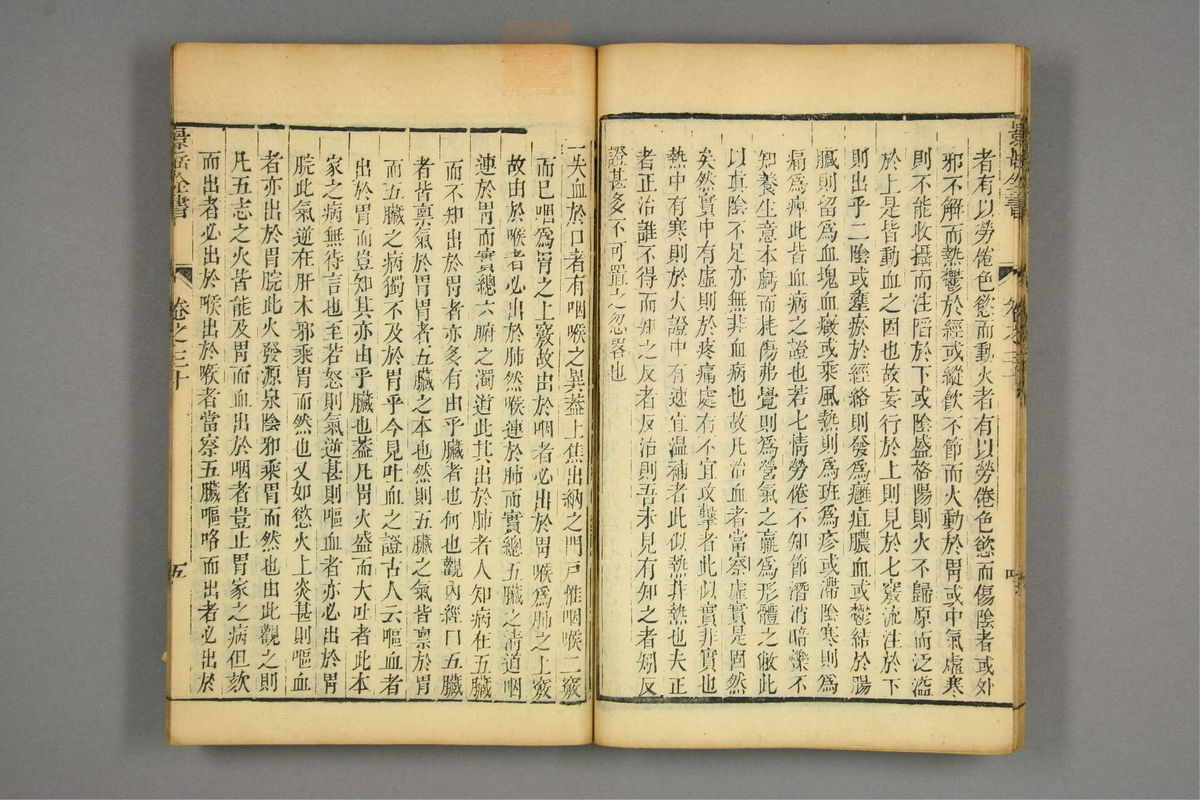 景岳全書
卷之三
者有以勞倦色慾而動火者有以勞倦色慾而傷陰者或外
邪不解而熱鬱於經或縱飲不節而火動於胃或中氣虛寒
則不能收攝而注陷於下或陰盛格陽則火不歸原而泛溢
於上是皆動血之因也故妄行於上則見於七竅流注於下
則出乎二陰或壅瘀於經絡則發爲癰疽膿血或鬱結於腸
臟則留爲血塊血癥或乘風熱則爲班爲疹或滯陰寒則爲
痛爲痺此皆血病之證也若七情勞倦不知節潛消暗爍不
知養生意本虧而耗傷弗覺則爲營氣之羸爲形體之敝此
以真陰不足亦無非血病也故凡治血者當察虛實是固然
矣然實中有虛則於疼痛處有不宜攻擊者此似實非實也
熱中有寒則於火證中有速宜温補者此似熱非熱也夫正
者正治誰不得而知之反者反治則吾未見有知之者矧反
證甚多不可置之忽畧也
一失血於口者有咽喉之異葢上焦出納之門戸惟咽喉二竅
而巳咽爲胃之上竅故出於咽者必出於胃喉爲肺之上竅
故由於喉者必出於肺然喉連於肺而實總五臟之清道咽
連於胃而實總六腑之濁道此其出於肺者人知病在五臟
而不知出於胃者亦多有由乎臟者也何也觀內經曰五臟
者皆禀氣於胃胃者五臟之本也然則五臟之氣皆禀於胃
而五臟之病獨不及於胃乎今見吐血之證古人云嘔血者
出於胃而豈知其亦由乎臟也葢凡胃火盛而大吐者此本
家之病無待言也至若怒則氣逆甚則嘔血者亦必出於胃
脘此氣逆在肝木邪乘胃而然也又如慾火上炎甚則嘔血
者亦出於胃脘此火發源泉陰邪乘胃而然也由此觀之則
凡五志之火皆能及胃而血出於咽者豈止胃家之病但欬
而出者必出於喉出於喉者當察五臟嘔咯而出者必出於
景岳全書
卷之三十
五